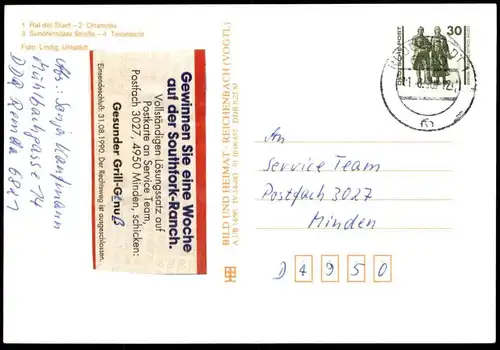 1 Rat der Stadt – 2 Ortsmotiv
3 Sundremdaer Straße – 4 Teilansicht
Foto: Lindig, Uhlstädt
Abs.: Sonja Kaufmann
Mühlbachgasse 14
DDR Remda 6821
Gewinnen Sie eine Woche
auf der Southfork-Ranch.
Vollständigen Lösungssatz auf
Postkarte an Service Team,
Postfach 3027, 4950 Minden, schicken:
Gesunder Grill-Genuß
Einsendeschluß: 31.08.1990. Der Rechtsweg ist ausgeschlossen.
BILD UND HEIMAT · REICHENBACH (VOGTL)
30
An
Service Team
Postfach 3027
Minden
D 4950